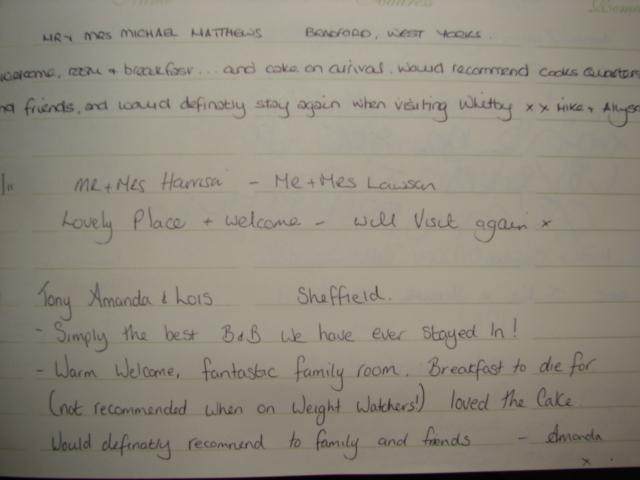 MR + MRS MICHAEL MATTHEWS BRADFORD, WEST YORKS.
welcome, room + breakfast... and cake on arrival. Would recommend Cooks Quarters
friends, and would definatly stay again when visiting Whitby x x Mike +
MR + MRS Harrison - MR + MRS Lawson
Lovely Place + welcome - will visit again x
Tony Amanda & Lois Sheffield.
- Simply the best B&B we have ever stayed in!
- Warm Welcome, fantastic family room. Breakfast to die for
(not recommended when on Weight Watchers!) loved the Cake
Would definatly recommend to family and friends - Amanda
x